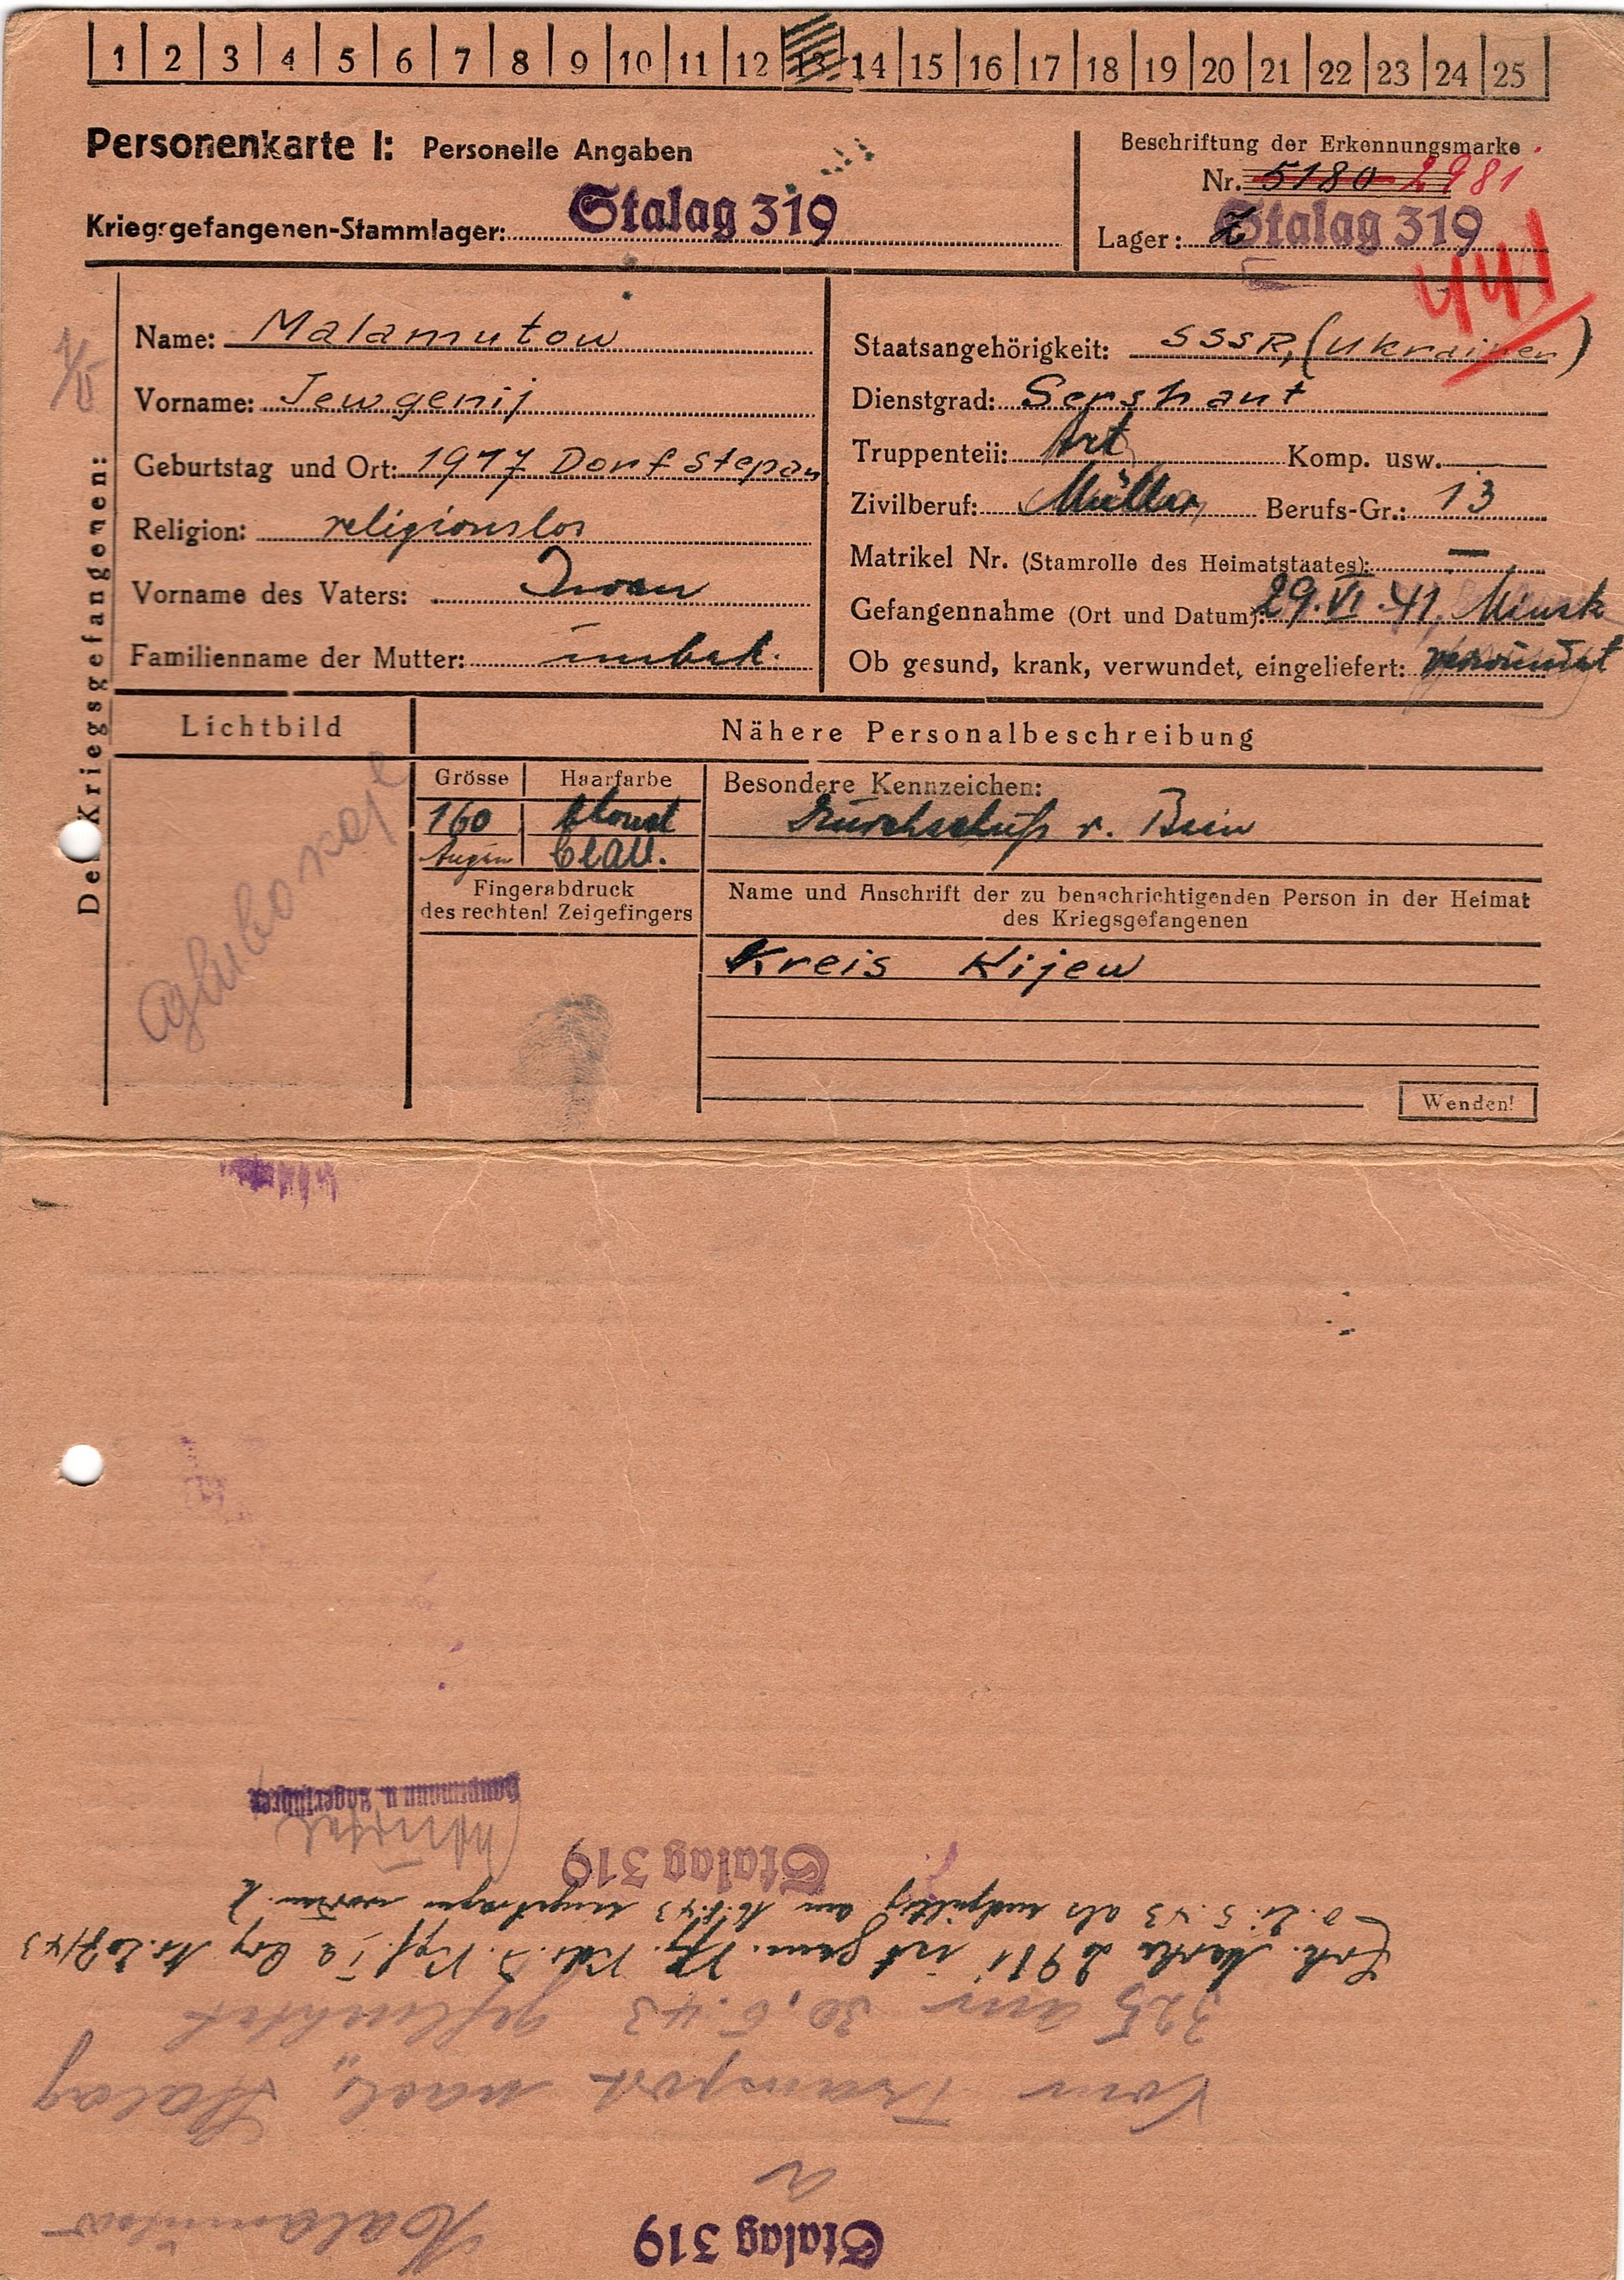 1 2 3 4 5 6 7 8 9 10 11 12 13 14 15 16 17 18 19 20 21 22 23 24 25
Personenkarte I: Personelle Angaben
Beschriftung der Erkennungsmarke
Nr. 5180 2981
Kriegsgefangenen-Stammlager: Stalag 319
Lager: Stalag 319
441
Des Kriegsgefangenen:
Name: Malamutow
Staatsangehörigkeit: SSSR, (Ukrainer)
Vorname: Jewgenij
Dienstgrad: Sershant
Geburtstag und Ort: 1917 Dorf Stepan
Truppenteil: Art. Komp. usw.
Religion: religionslos
Zivilberuf: Müller Berufs-Gr.: 13
Matrikel Nr. (Stamrolle des Heimatstaates): —
Vorname des Vaters: Iwan
Gefangennahme (Ort und Datum): 29.VI.41. Minsk
Familienname der Mutter: unbek.
Ob gesund, krank, verwundet, eingeliefert: verwundet
Lichtbild
Nähere Personalbeschreibung
Grösse Haarfarbe
Besondere Kennzeichen:
160 blond
Durchschuß r. Bein
Augen blau.
Fingerabdruck
des rechten! Zeigefingers
Name und Anschrift der zu benachrichtigenden Person in der Heimat
des Kriegsgefangenen
Kreis Kijew
Wenden!
Stalag 319
Malamutow
Vom Transport nach Stalag
325 am 30.6.43 geflüchtet
Erk. Marke 2981 ist gem. Vfg. Kdr. d. Kgf.
als endgültig am eingetragen worden.
Stalag 319
Hauptmann u. Lagerführer